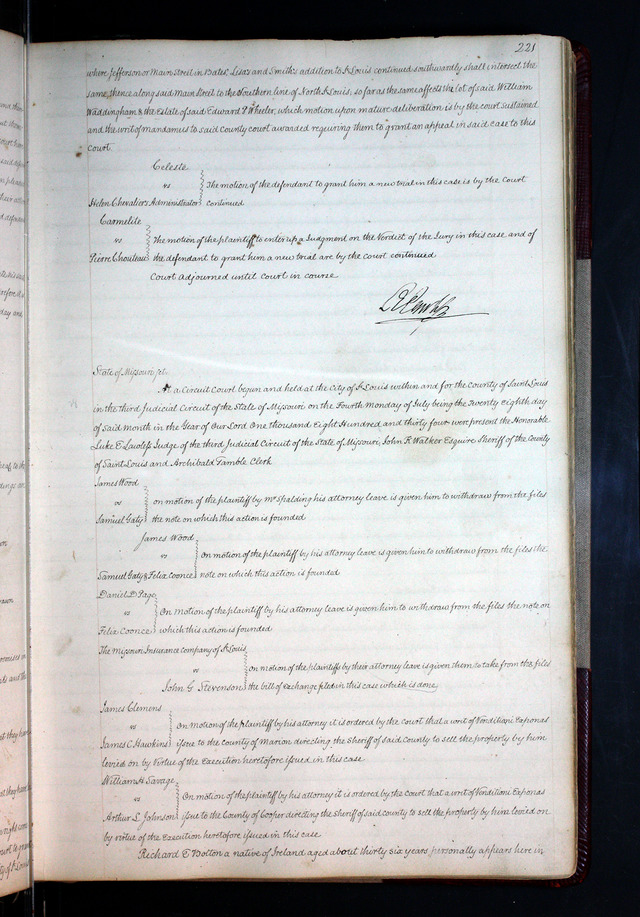 221
where Jefferson or Main Street in Bates, Lisa's and Smith's addition to St Louis continued southwardly shall intersect the
same, thence along said Main Street to the Southern line of North St Louis, so far as the same affects the lot of said William
Waddingham & the Estate of said Edward P Wheeler, which motion upon mature deliberation is by the court sustained
and the writ of mandamus to said county court awarded requiring them to grant an appeal in said case to this
court.
Celeste
vs
The motion of the defendant to grant him a new trial in this case is by the Court
Helen Chevaliers Administrator
continued
Carmelite
vs
The motion of the plaintiff to enter up a Judgment on the Verdict of the Jury in this case and of
Pierre Chouteau
the defendant to grant him a new trial are by the court continued
Court adjourned until court in course
State of Missouri, Sct.
At a Circuit Court begun and held at the City of St Louis within and for the County of Saint Louis
in the third Judicial Circuit of the State of Missouri on the Fourth Monday of July being the Twenty eighth day
of said month in the Year of Our Lord One thousand Eight Hundred and thirty four were present the Honorable
Luke E Lawless Judge of the third Judicial Circuit of the State of Missouri, John R Walker Esquire Sheriff of the County
of Saint Louis and Archibald Gamble Clerk
James Wood
vs
on motion of the plaintiff by Mr Spalding his attorney leave is given him to withdraw from the files
Samuel Gaty
the note on which this action is founded
James Wood
vs
on motion of the plaintiff by his attorney leave is given him to withdraw from the files the
Samuel Gaty & Felix Coonce
note on which this action is founded
Daniel D Page
vs
On motion of the plaintiff by his attorney leave is given him to withdraw from the files the note on
Felix Coonce
which this action is founded
The Missouri Insurance company of St Louis
vs
on motion of the plaintiffs by their attorney leave is given them to take from the files
John G Stevenson
the bill of exchange filed in this case which is done
James Clemens
vs
On motion of the plaintiff by his attorney it is ordered by the court that a writ of Venditioni Exponas
James C Hawkins
issue to the County of Marion directing the Sheriff of said county to sell the property by him
levied on by virtue of the Execution heretofore issued in this case
William H Savage
vs
On motion of the plaintiff by his attorney it is ordered by the court that a writ of Venditioni Exponas
Arthur L Johnson
issue to the County of Cooper directing the Sheriff of said county to sell the property by him levied on
by virtue of the Execution heretofore issued in this case
Richard E Bolton a native of Ireland aged about thirty six years, personally appears here in